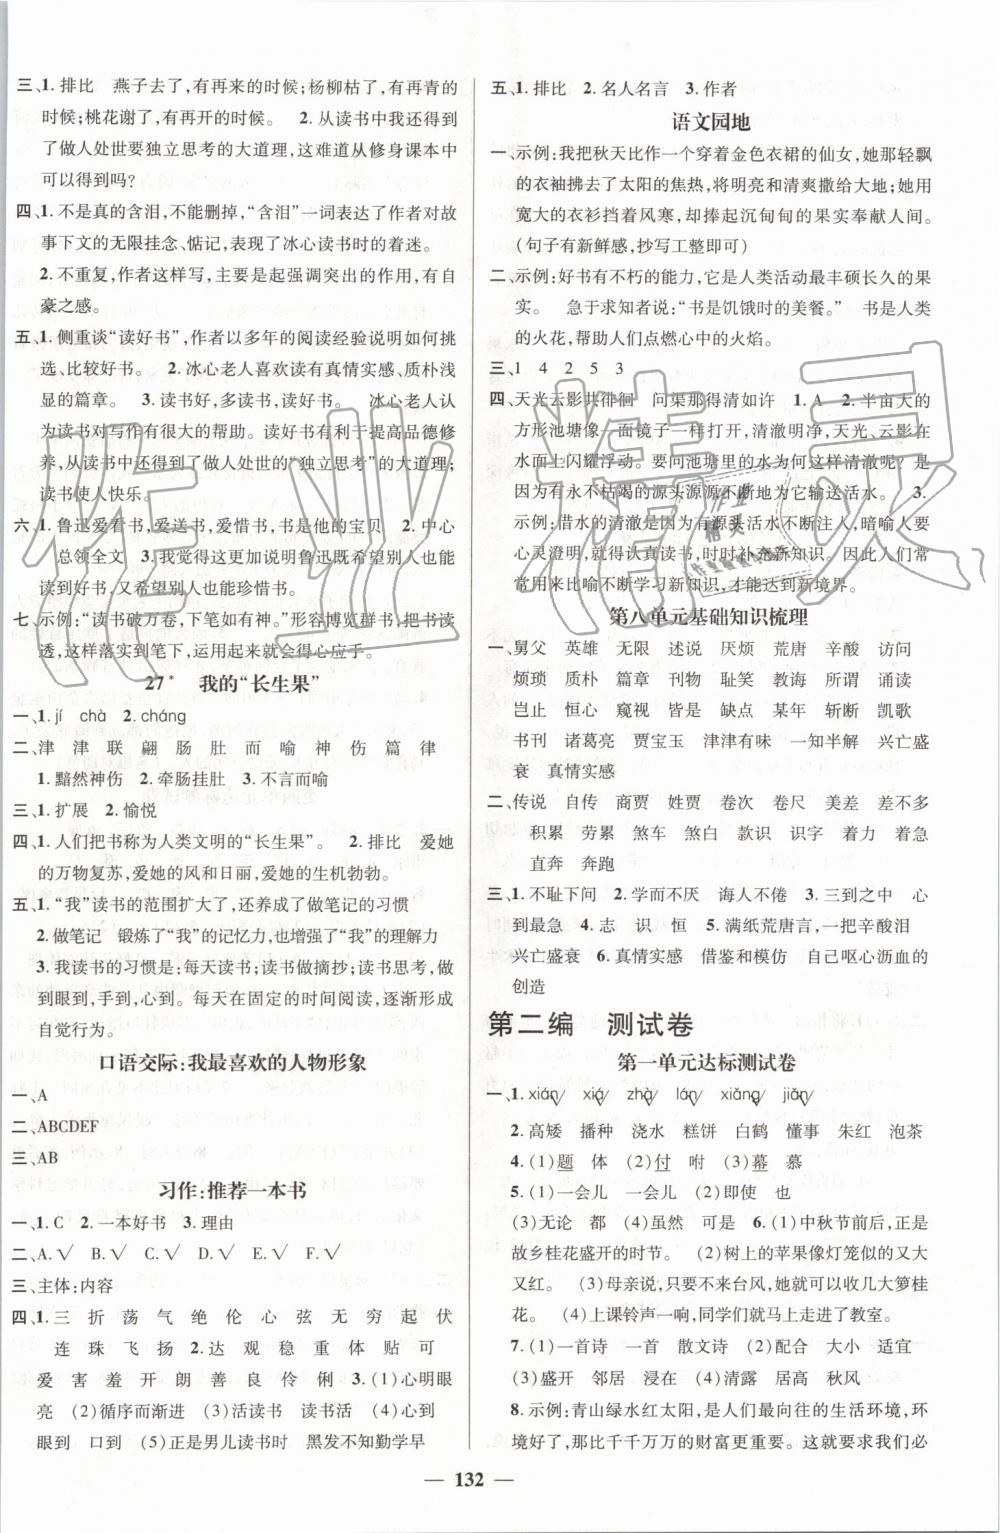 三、1. 排比　燕子去了,有再来的时候;杨柳枯了,有再青的
时候;桃花谢了,有再开的时候。　2. 从读书中我还得到
了做人处世要独立思考的大道理,这难道从修身课本中
可以得到吗?
四、1. 不是真的含泪,不能删掉,“含泪”一词表达了作者对故
事下文的无限挂念、惦记,表现了冰心读书时的着迷。
2. 不重复,作者这样写,主要是起强调突出的作用,有自
豪之感。
五、1. 侧重谈“读好书”,作者以多年的阅读经验说明如何挑
选、比较好书。　2. 冰心老人喜欢读有真情实感、质朴浅
显的篇章。　3. 读书好,多读书,读好书。　冰心老人认
为读书对写作有很大的帮助。读好书有利于提高品德修
养,从读书中还得到了做人处世的“独立思考”的大道理;
读书使人快乐。
六、1. 鲁迅爱看书,爱送书,爱惜书,书是他的宝贝　2. 中心
总领全文　3. 我觉得这更加说明鲁迅既希望别人也能
读到好书,又希望别人也能珍惜书。
七、示例:“读书破万卷,下笔如有神。”形容博览群书,把书读
透,这样落实到笔下,运用起来就会得心应手。
27*　我的“长生果”
一、1. jí　chà　2. cháng
二、津　津　联　翩　肠　肚　而　喻　神　伤　篇　律
1. 黯然神伤　2. 牵肠挂肚　3. 不言而喻
三、1. 扩展　2. 愉悦
四、1. 人们把书称为人类文明的“长生果”。　2. 排比　爱她
的万物复苏,爱她的风和日丽,爱她的生机勃勃。
五、1. “我”读书的范围扩大了,还养成了做笔记的习惯
2. 做笔记　锻炼了“我”的记忆力,也增强了“我”的理解力
3. 我读书的习惯是:每天读书;读书做摘抄;读书思考,做
到眼到,手到,心到。每天在固定的时间阅读,逐渐形成
自觉行为。
口语交际:我最喜欢的人物形象
一、A
二、ABCDEF
三、AB
习作:推荐一本书
一、1. C　2. 一本好书　3. 理由
二、A. √　B. √　C. √　D. √　E. √　F. √
三、主体:内容
四、1. 三　折　荡　气　绝　伦　心　弦　无　穷　起　伏
连　珠　飞　扬　2. 达　观　稳　重　体　贴　可
爱　害　羞　开　朗　善　良　伶　俐　3. (1)心明眼
亮　(2)循序而渐进　(3)活读书　读书活　(4)心到
眼到　口到　(5)正是男儿读书时　黑发不知勤学早
五、1. 排比　2. 名人名言　3. 作者
语文园地
一、示例:我把秋天比作一个穿着金色衣裙的仙女,她那轻飘
的衣袖拂去了太阳的焦热,将明亮和清爽撒给大地;她用
宽大的衣衫挡着风寒,却捧起沉甸甸的果实奉献人间。
(句子有新鲜感,抄写工整即可)
二、示例:好书有不朽的能力,它是人类活动最丰硕长久的果
实。　急于求知者说:“书是饥饿时的美餐。”　书是人类
的火花,帮助人们点燃心中的火焰。
三、1　4　2　5　3
四、天光云影共徘徊　问渠那得清如许　1. A　2. 半亩大的
方形池塘像一面镜子一样打开,清澈明净,天光、云影在
水面上闪耀浮动。要问池塘里的水为何这样清澈呢?是
因为有永不枯竭的源头源源不断地为它输送活水。　3.
示例:借水的清澈是因为有源头活水不断注入,暗喻人要
心灵澄明,就得认真读书,时时补充新知识。因此人们常
常用来比喻不断学习新知识,才能达到新境界。
第八单元基础知识梳理
一、舅父　英雄　无限　述说　厌烦　荒唐　辛酸　访问
烦琐　质朴　篇章　刊物　耻笑　教诲　所谓　诵读
岂止　恒心　窥视　皆是　缺点　某年　斩断　凯歌
书刊　诸葛亮　贾宝玉　津津有味　一知半解　兴亡盛
衰　真情实感
二、传说　自传　商贾　姓贾　卷次　卷尺　美差　差不多
积累　劳累　煞车　煞白　款识　识字　着力　着急
直奔　奔跑
三、1. 不耻下问　2. 学而不厌　诲人不倦　3. 三到之中　心
到最急　4. 志　识　恒　5. 满纸荒唐言,一把辛酸泪
兴亡盛衰　6. 真情实感　借鉴和模仿　自己呕心沥血的
创造
第二编　测试卷
第一单元达标测试卷
一、1. xián√　xiá√　zhà√　lán√　xiāng√　jiān√
2. 高矮　播种　浇水　糕饼　白鹤　懂事　朱红　泡茶
4. (1)题　体　(2)付　咐　(3)幕　慕
5. (1)一会儿　一会儿　(2)即使　也
(3)无论　都　(4)虽然　可是　6. (1)中秋节前后,正是
故乡桂花盛开的时节。　(2)树上的苹果像灯笼似的又大
又红。　(3)母亲说,只要不来台风,她就可以收几大箩桂
花。　(4)上课铃声一响,同学们就马上走进了教室。
7. (1)一首诗　一首　散文诗　(2)配合　大小　适宜
(3)盛开　邻居　浸在　(4)清露　居高　秋风
8. 示例:青山绿水红太阳,是人们最向往的生活环境,环
境好了,那比千千万万的财富更重要。这就要求我们必
— 132 —
作业精灵